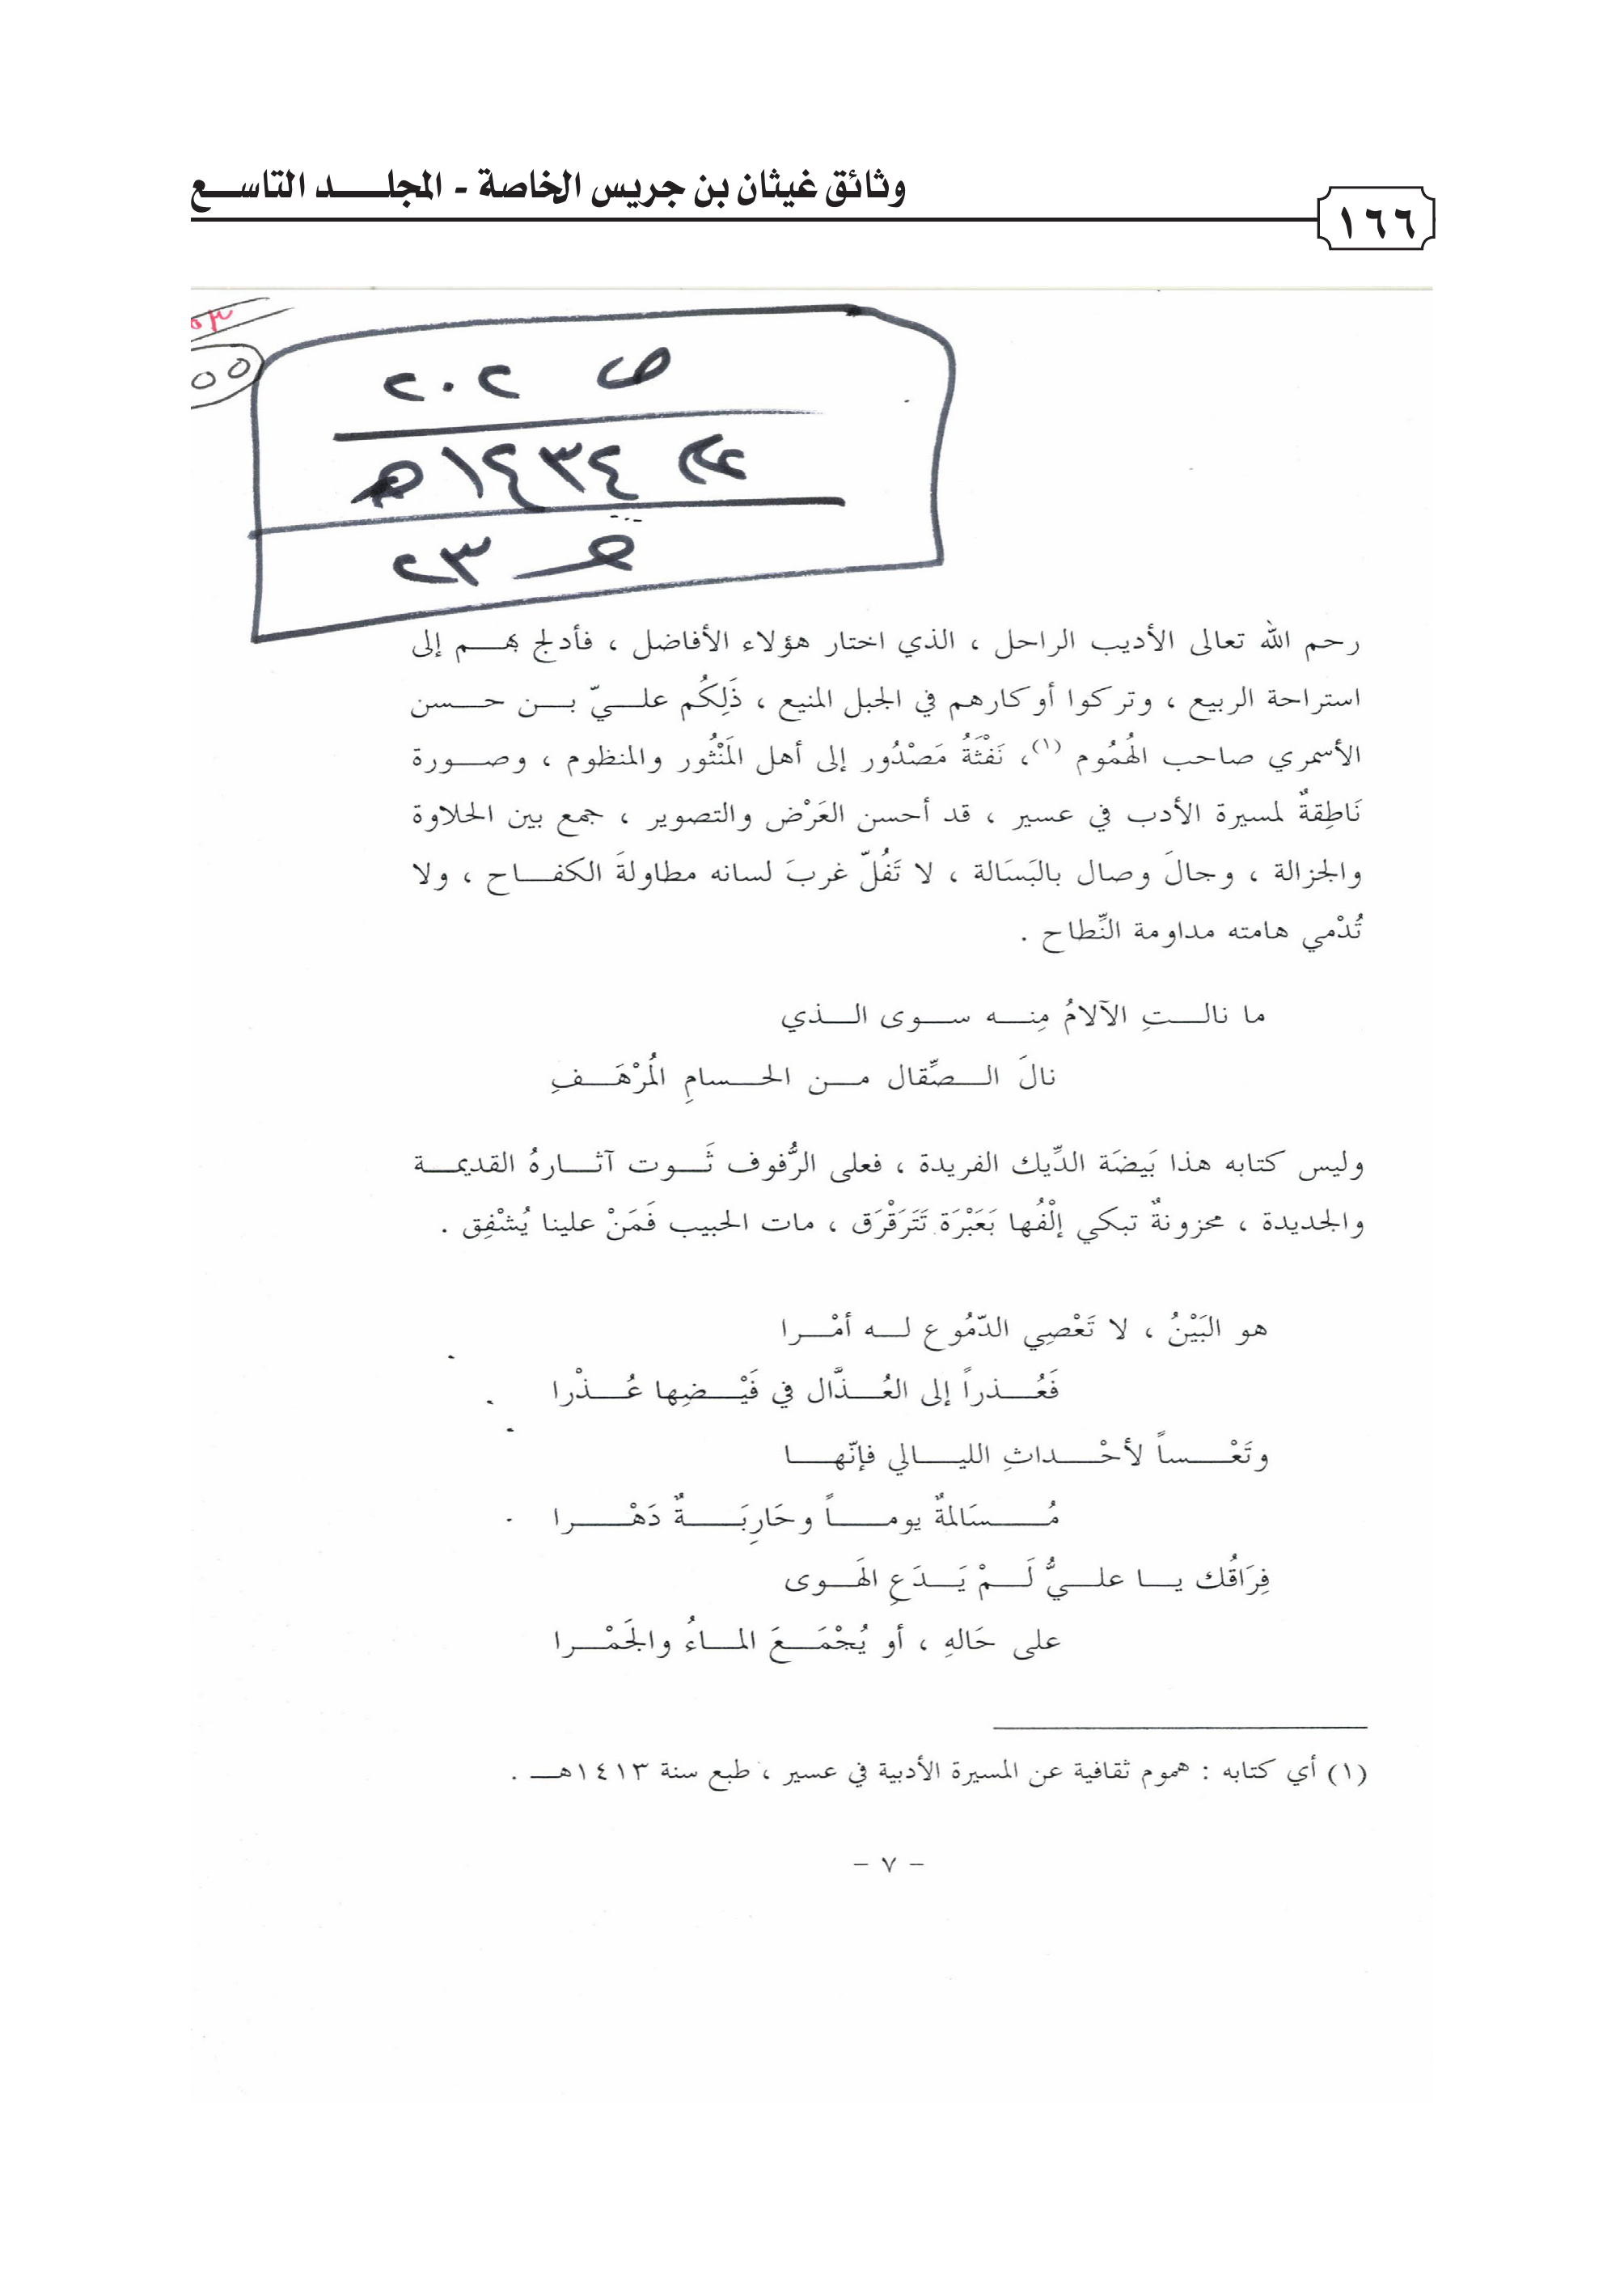 وثائق غيثان بن جريس الخاصة - المجلـــد التاســـع
١٦٦
٠٣
٥٥
ص ٢٠٢
١٤٣٤هـ
ص ٢٣
رحم الله تعالى الأديب الراحل ، الذي اختار هؤلاء الأفاضل ، فأدلج بهـــم إلى
استراحة الربيع ، وتركوا أوكارهم في الجبل المنيع ، ذَلِكُم علـــيّ بـــن حـــسن
الأسمري صاحب الهُمُوم (١)، نَفْثَةُ مَصْدُور إلى أهل المَنْثُور والمنظوم ، وصـــورة
نَاطِقةٌ لمسيرة الأدب في عسير ، قد أحسن العَرْض والتصوير ، جمع بين الحلاوة
والجزالة ، وجالَ وصال بالبَسَالة ، لا تَفُلّ غربَ لسانه مطاولةَ الكفـــاح ، ولا
تُدْمي هامته مداومة النِّطاح .
ما نالـــتِ الآلامُ مِنـــه ســـوى الـــذي
نالَ الـــصِّقال مـــن الحـــسامِ المُرْهَـــفِ
وليس كتابه هذا بَيضَة الدِّيك الفريدة ، فعلى الرُّفوف ثَـــوت آثـــارهُ القديمـــة
والجديدة ، محزونةٌ تبكي إلْفُها بَعَبْرَة تَتَرَقْرَق ، مات الحبيب فَمَنْ علينا يُشْفِق .
هو البَيْنُ ، لا تَعْصِي الدّمُوع لـــه أمْـــرا
فَعُـــذراً إلى العُـــذَّال في فَيْـــضِها عُـــذْرا
وتَعْـــساً لأحْـــداثِ الليـــالي فإنّهـــا
مُـــسَالمةٌ يومـــاً وحَارِبَـــةٌ دَهْـــرا
فِرَاقُك يـــا علـــيُّ لَـــمْ يَـــدَعِ الهَـــوى
على حَالهِ ، أو يُجْمَـــعَ المـــاءُ والجَمْـــرا
(١) أي كتابه : هموم ثقافية عن المسيرة الأدبية في عسير ، طبع سنة ١٤١٣هـــ .
- ٧ -